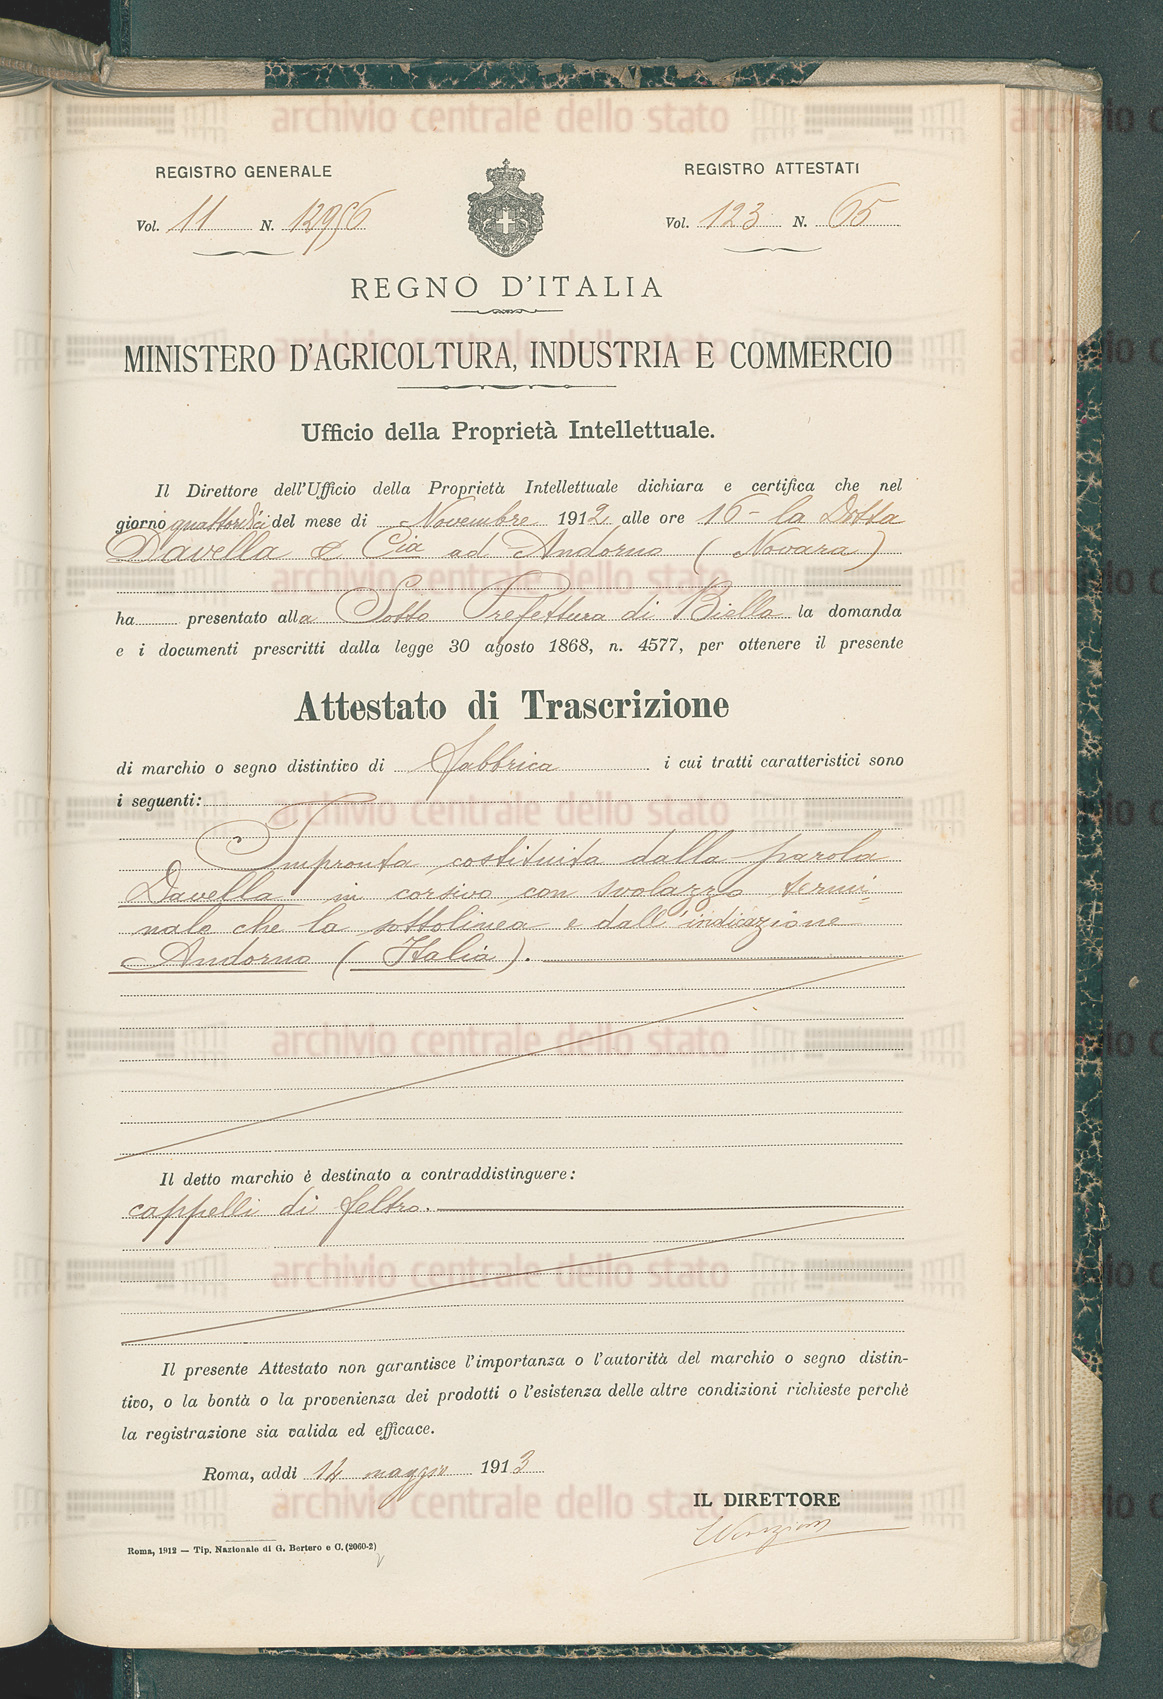 REGISTRO GENERALE
REGISTRO ATTESTATI
Vol. 11 N. 12956
Vol. 123 N. 65
REGNO D'ITALIA
MINISTERO D'AGRICOLTURA, INDUSTRIA E COMMERCIO
Ufficio della Proprietà Intellettuale.
Il Direttore dell'Ufficio della Proprietà Intellettuale dichiara e certifica che nel
giorno quattordici del mese di Novembre 1912 alle ore 16 - la Ditta
Davella & Cia ad Andorno (Novara)
ha presentato alla Sotto Prefettura di Biella la domanda
e i documenti prescritti dalla legge 30 agosto 1868, n. 4577, per ottenere il presente
Attestato di Trascrizione
di marchio o segno distintivo di fabbrica i cui tratti caratteristici sono
i seguenti:
Impronta costituita dalla parola
Davella in corsivo con svolazzo termi-
nale che la sottolinea e dall'indicazione
Andorno (Italia).
Il detto marchio è destinato a contraddistinguere:
cappelli di feltro.
Il presente Attestato non garantisce l'importanza o l'autorità del marchio o segno distin-
tivo, o la bontà o la provenienza dei prodotti o l'esistenza delle altre condizioni richieste perchè
la registrazione sia valida ed efficace.
Roma, addì 14 maggio 1913
IL DIRETTORE
Roma, 1912 — Tip. Nazionale di G. Bertero e C. (2060-2)
archivio centrale dello stato